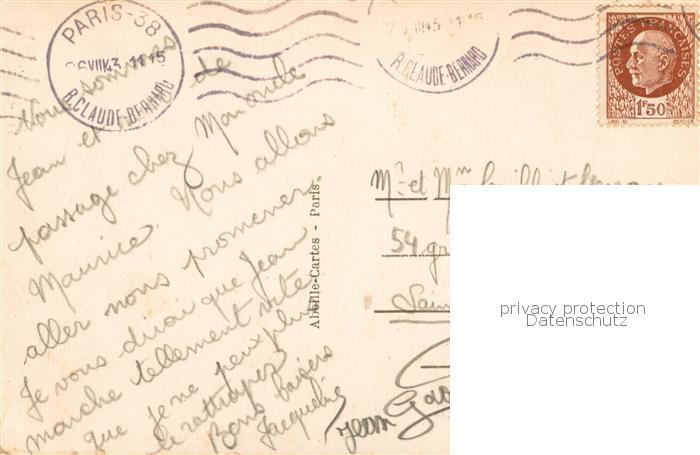 PARIS-38
26 VIII 43 11 15
R. CLAUDE-BERNARD
11 15
R. CLAUDE-BERNARD
POSTES FRANÇAISES
1F50
Nous sommes
Jean et de
passage chez Mononcle
Maurice. Nous allons
aller nous promener
Je vous dirai que Jean
marche tellement vite
que je ne peux plus
le rattraper
Bons baisers
Jacqueline
Jean
Abeille-Cartes - Paris.
Mr et Mm
54 gr
Sain
privacy protection
Datenschutz